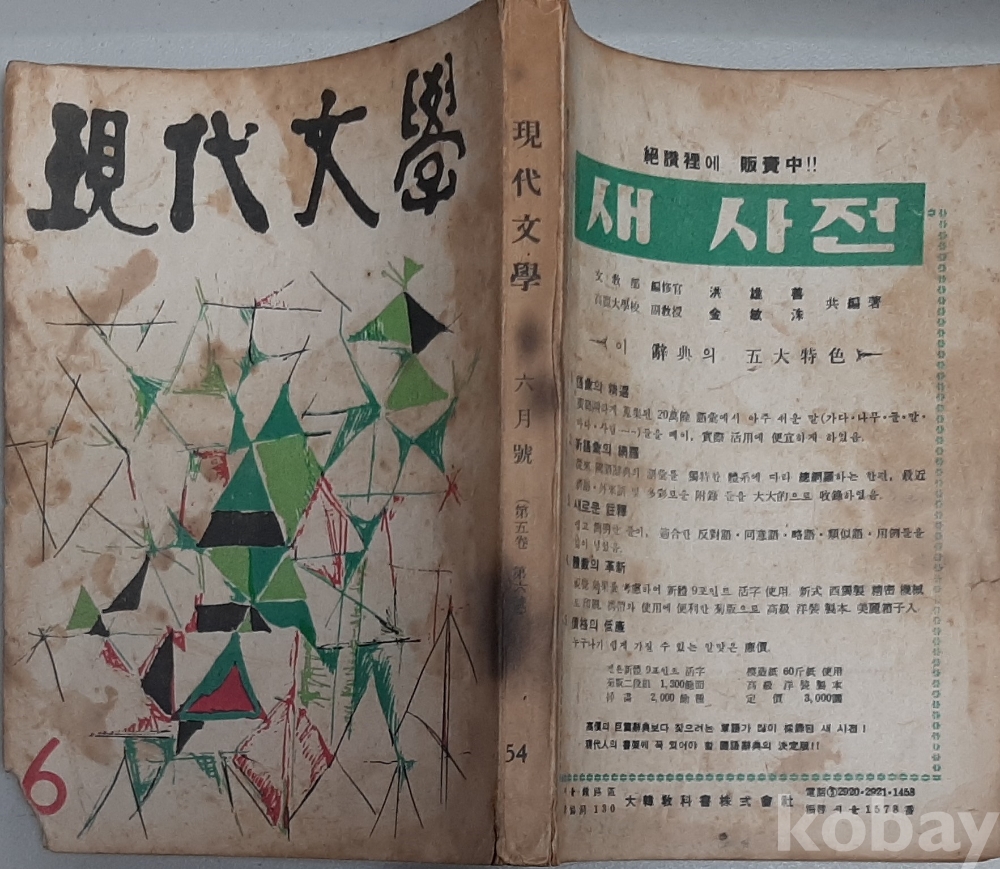 現代文學
6
現代文學
六月號
(第五卷 第六
54
絕讚裡에 販賣中!!
새 사전
文敎部 編修官 洪雄善
高麗大學校 副敎授 金敏洙 共編著
이 辭典의 五大特色
語彙의 精選
蒐集된 20萬餘 語彙에서 아주 쉬운 말(가다·나무·물·밥·
들을 빼어, 實際 活用에 便宜하게 하였음.
新語彙의 網羅
獨特한 體系에 따라 總網羅하는 한편, 最近
外來語 및 多彩로운 附錄 들을 大大的으로 收錄하였음.
새로운 註釋
쉽고 簡明한 풀이, 適合한 反對語·同意語·略語·類似語·用例들을
많이 넣었음.
體裁의 革新
視覺 效果를 考慮하여 新體 9포인트 活字 使用. 新式 西獨製 精密 機械
로 印刷. 携帶와 使用에 便利한 菊版으로 高級 洋裝 製本. 美麗箱子入.
價格의 低廉
누구나가 쉽게 가질 수 있는 알맞은 廉價.
新體 9포인트 活字 模造紙 60斤紙 使用
菊版二段組 1,300餘面 高級 洋裝 製本
揷畵 2,000餘種 定價 3,000圜
高價의 巨質辭典보다 찾으려는 單語가 많이 採錄된 새 사전!
現代人의 書架에 꼭 있어야 할 國語辭典의 決定版!!
鍾路區 大韓敎科書株式會社 電話③2920·2921·1453
130 振替 서울 1578番
kobay